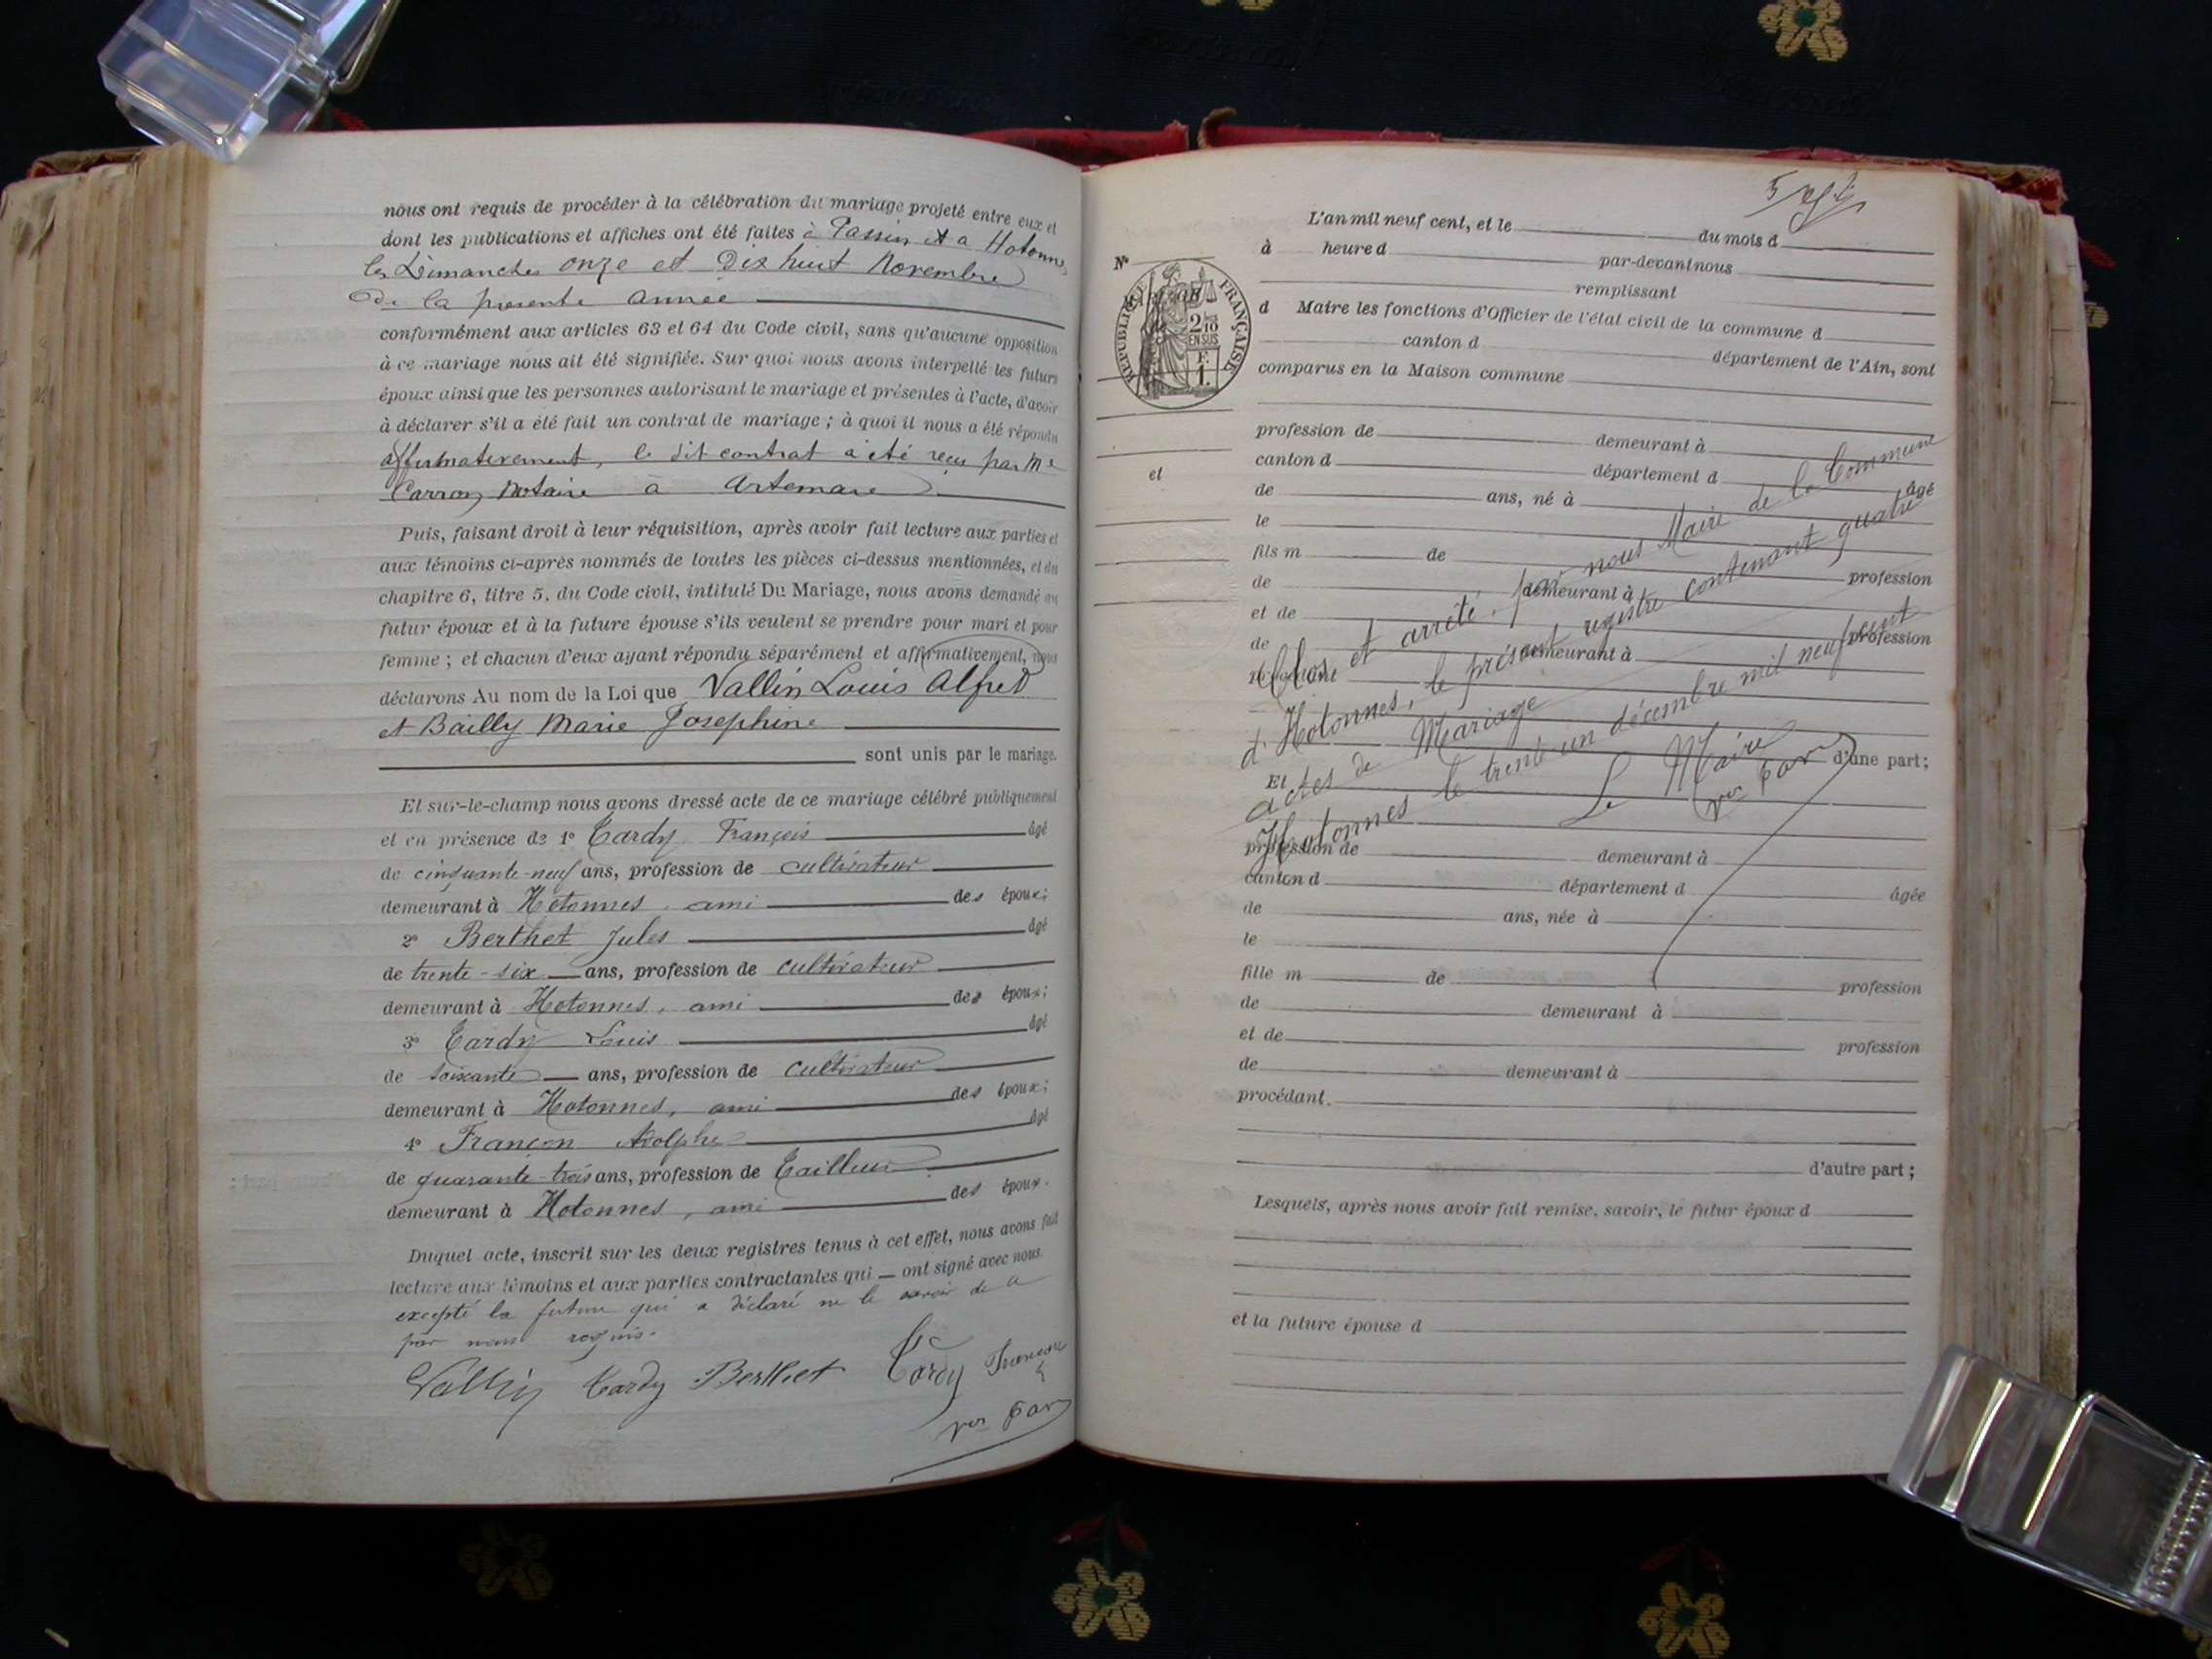 nous ont requis de procéder à la célébration du mariage projeté entre eux et
dont les publications et affiches ont été faites à Passin et a Hotonnes
les Dimanches onze et Dix huit Novembre
De la presente année
conformément aux articles 63 et 64 du Code civil, sans qu'aucune opposition
à ce mariage nous ait été signifiée. Sur quoi nous avons interpellé les futurs
époux ainsi que les personnes autorisant le mariage et présentes à l'acte, d'avoir
à déclarer s'il a été fait un contrat de mariage ; à quoi il nous a été répondu
affirmativement, le dit contrat a été reçu par Me
Carron, Notaire à Artemare
Puis, faisant droit à leur réquisition, après avoir fait lecture aux parties et
aux témoins ci-après nommés de toutes les pièces ci-dessus mentionnées, et du
chapitre 6, titre 5, du Code civil, intitulé Du Mariage, nous avons demandé au
futur époux et à la future épouse s'ils veulent se prendre pour mari et pour
femme ; et chacun d'eux ayant répondu séparément et affirmativement, nous
déclarons Au nom de la Loi que Vallin Louis Alfred
et Bailly Marie Josephine
sont unis par le mariage.
Et sur-le-champ nous avons dressé acte de ce mariage célébré publiquement
et en présence de 1° Tardy François âgé
de cinquante-neuf ans, profession de cultivateur
demeurant à Hotonnes, ami des époux;
2° Berthet Jules âgé
de trente-six ans, profession de cultivateur
demeurant à Hotonnes, ami des époux;
3° Tardy Louis âgé
de soixante ans, profession de cultivateur
demeurant à Hotonnes, ami des époux;
4° Françon Adolphe âgé
de quarante-trois ans, profession de Tailleur
demeurant à Hotonnes, ami des époux.
Duquel acte, inscrit sur les deux registres tenus à cet effet, nous avons fait
lecture aux témoins et aux parties contractantes qui ont signé avec nous
excepté la future qui a déclaré ne le savoir de ce
par nous requis.
Vallin Tardy Berthet Tardy
L'an mil neuf cent, et le du mois d
à heure d par-devant nous
N°
remplissant
d Maire les fonctions d'Officier de l'état civil de la commune d
canton d département de l'Ain, sont
comparus en la Maison commune
RÉPUBLIQUE FRANÇAISE
2/10
EN SUS
F.
1.
profession de demeurant à
canton d département d âgé
et
de ans, né à
le
fils m de
de demeurant à profession
et de
de demeurant à profession
Clos et arrêté par nous Maire de la Commune
d'Hotonnes, le présent registre contenant quatre
actes de Mariage
Hotonnes le trente-un décembre mil neuf cent
Le Maire
d'une part;
Et
profession de demeurant à
canton d département d âgée
de ans, née à
le
fille m de profession
de demeurant à
et de profession
de demeurant à
procédant
d'autre part ;
Lesquels, après nous avoir fait remise, savoir, le futur époux d
et la future épouse d